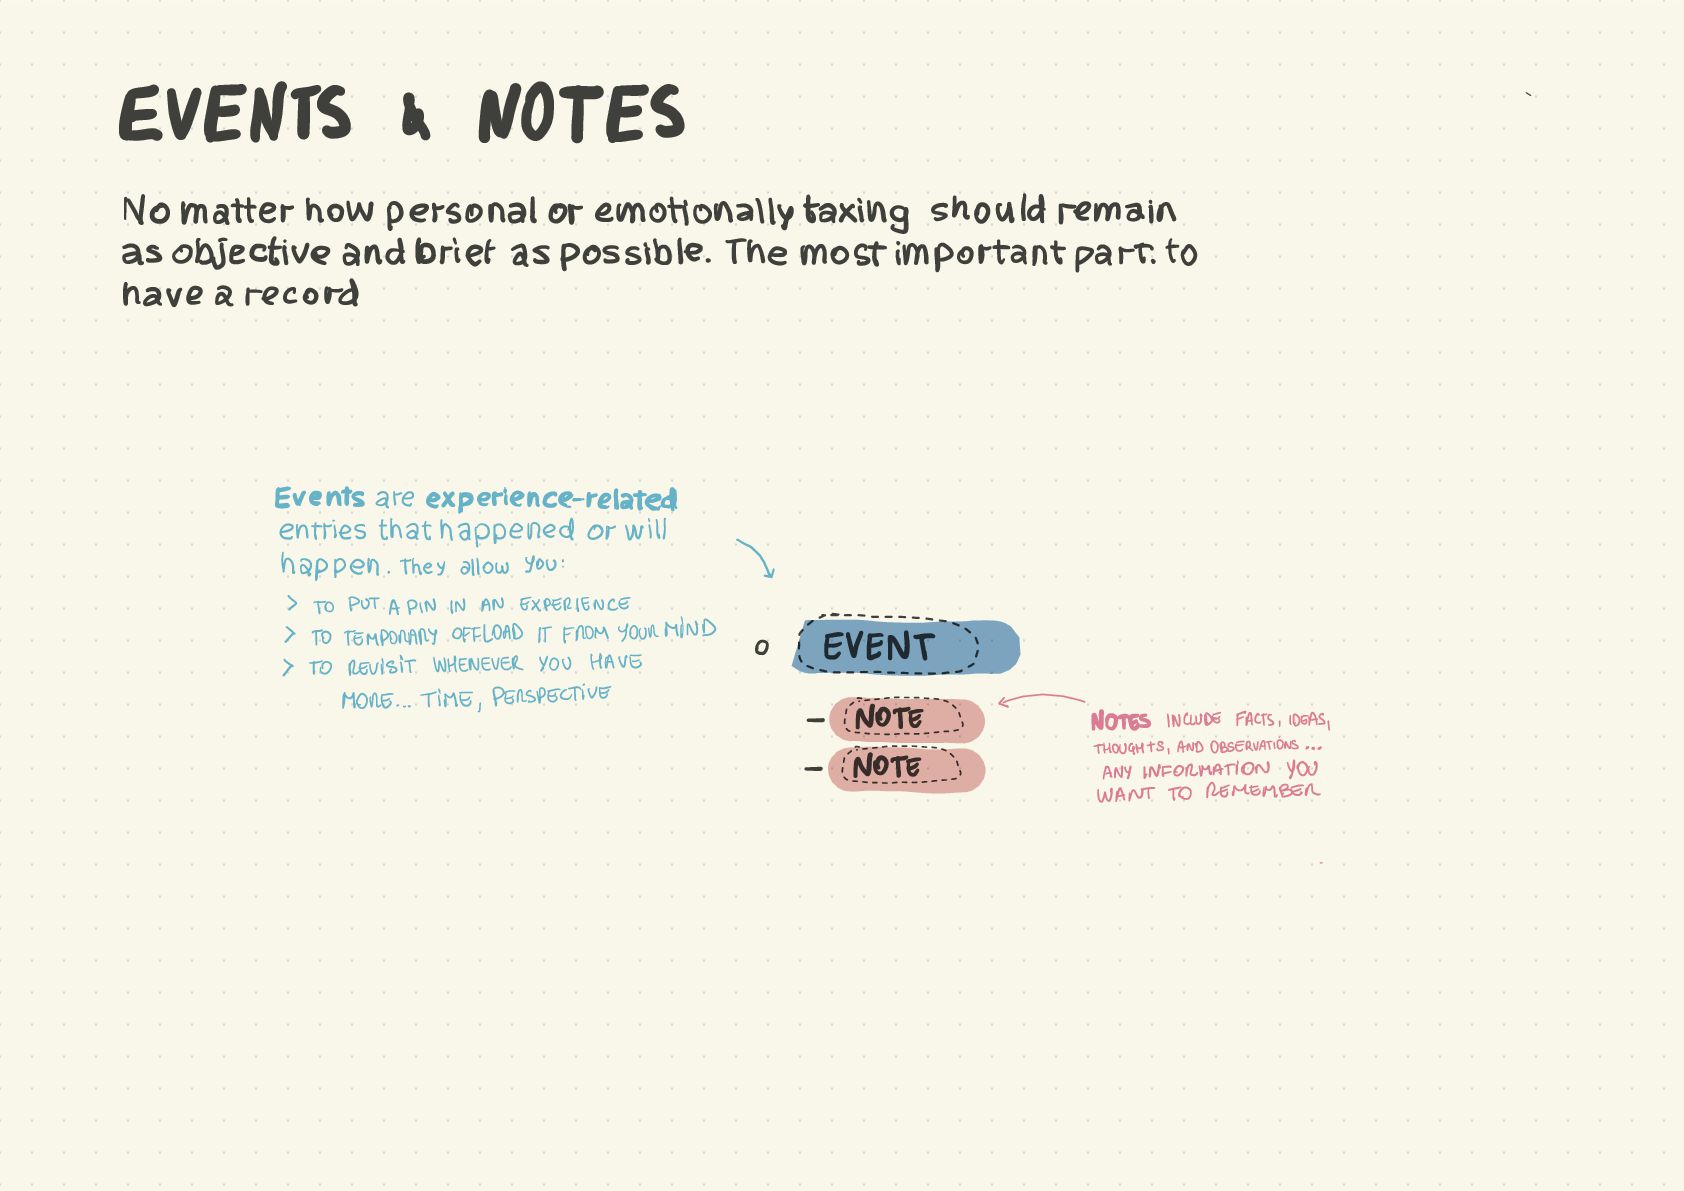 EVENTS & NOTES
No matter how personal or emotionally taxing should remain
as objective and brief as possible. The most important part: to
have a record
Events are experience-related
entries that happened or will
happen. They allow you:
> TO PUT A PIN IN AN EXPERIENCE
> TO TEMPORARY OFFLOAD IT FROM YOUR MIND
> TO REVISIT WHENEVER YOU HAVE
MORE... TIME, PERSPECTIVE
o EVENT
- NOTE
- NOTE
NOTES INCLUDE FACTS, IDEAS,
THOUGHTS, AND OBSERVATIONS...
ANY INFORMATION YOU
WANT TO REMEMBER